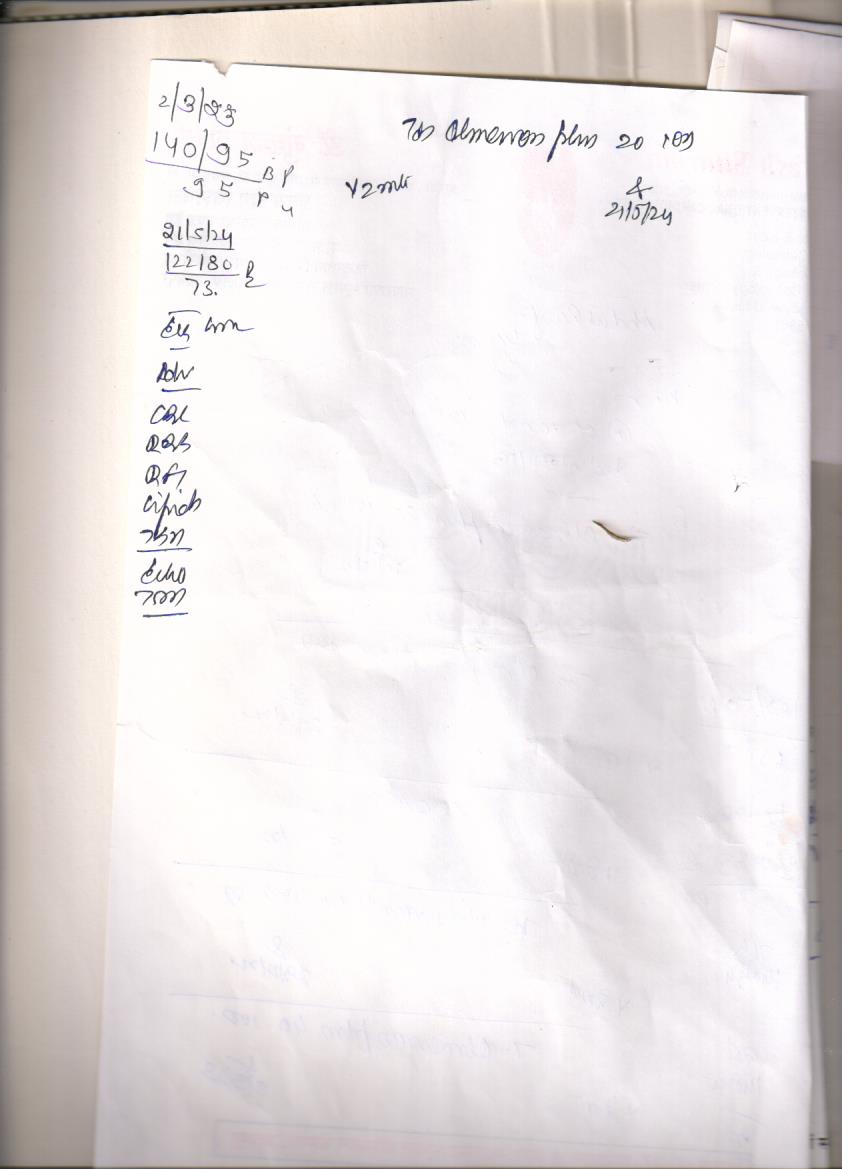 2/3/23
140/95 BP
95 P
Tab Olmemean plus 20 1OD
x 2 mth
21/5/24
21/5/24
122/80
73.
Adv
CBC
RBS
RFT
Lipids
TSH
Echo
TMT